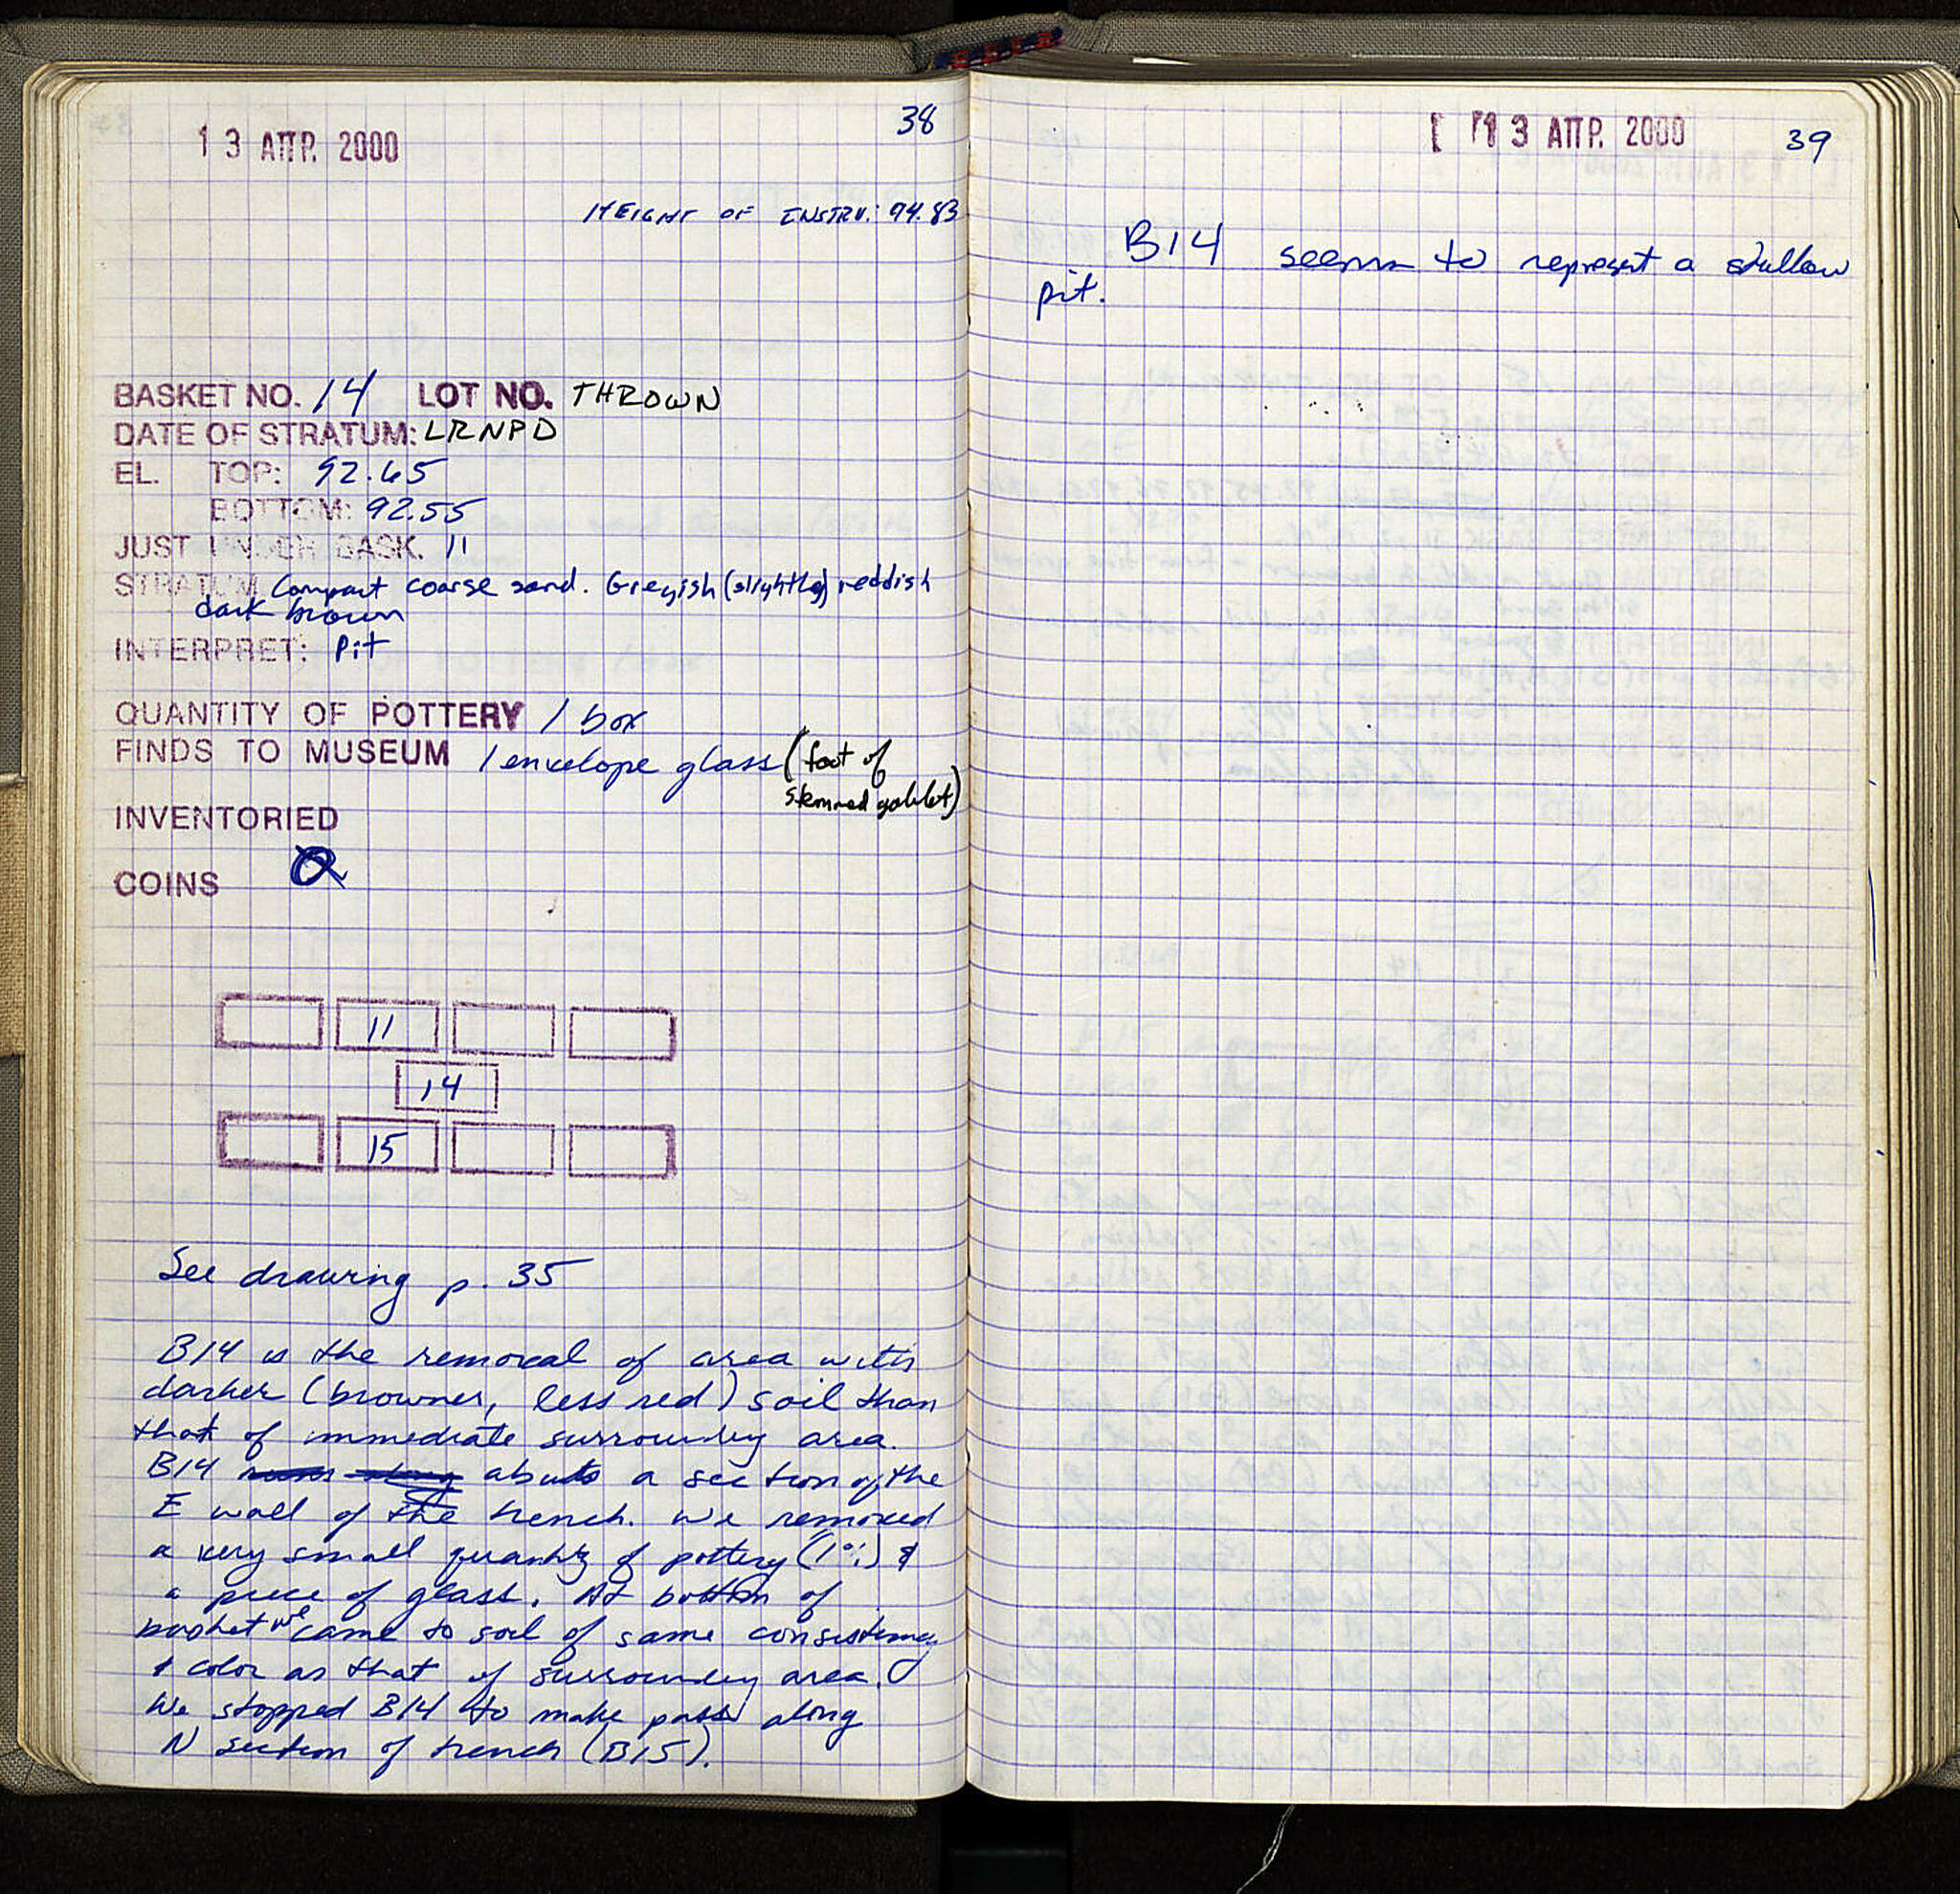 13 ΑΠΡ. 2000
38
HEIGHT OF INSTRU.: 94.83
BASKET NO. 14 LOT NO. THROWN
DATE OF STRATUM: LRNPD
EL. TOP: 92.65
BOTTOM: 92.55
JUST UNDER BASK. 11
STRATUM Compact coarse sand. Greyish (slightly) reddish
dark brown
INTERPRET: Pit
QUANTITY OF POTTERY 1 box
FINDS TO MUSEUM 1 envelope glass (foot of
stemmed goblet)
INVENTORIED
COINS
11
14
15
See drawing p. 35
B14 is the removal of area with
darker (browner, less red) soil than
that of immediate surrounding area.
B14 abuts a section of the
E wall of the trench. We removed
a very small quantity of pottery (1%) &
a piece of glass. At bottom of
basket we came to soil of same consistency
& color as that of surrounding area.
We stopped B14 to make pass along
N section of trench (B15).
13 ΑΠΡ. 2000
39
B14 seems to represent a shallow
pit.